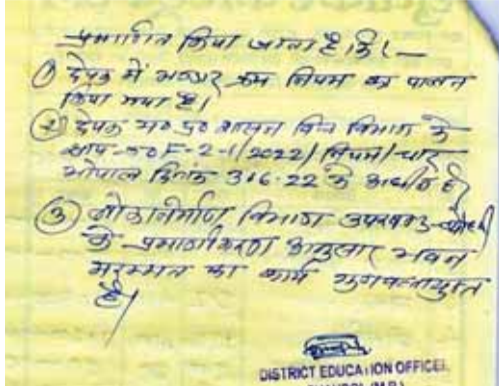 प्रमाणित किया जाता है कि :—
① देयक में भण्डार क्रय नियम का पालन
किया गया है।
② देयक म०प्र० शासन वित्त विभाग के
ज्ञाप क्र० F-2-1/2022/नियम/चार
भोपाल दिनांक 3.6.22 के अधीन है।
③ लोकनिर्माण विभाग उपखण्ड
के प्रमाणीकरण अनुसार भवन
मरम्मत का कार्य गुणवत्तायुक्त
है।
DISTRICT EDUCATION OFFICER